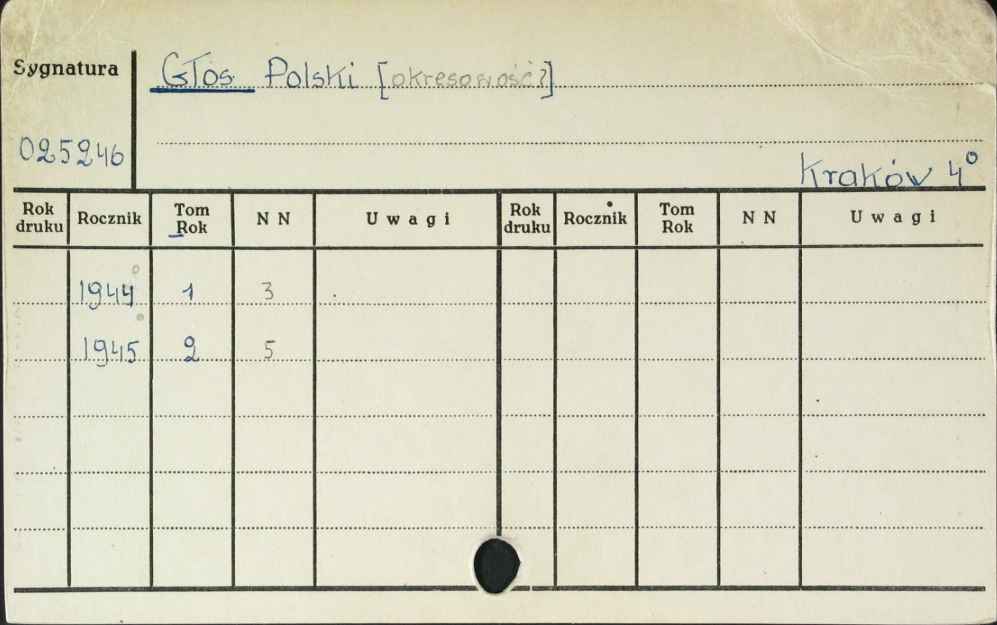 Sygnatura
Głos Polski [okresowość?]
025246
Kraków 4°
Rok druku Rocznik Tom Rok NN Uwagi Rok druku Rocznik Tom Rok NN Uwagi
1944 1 3
1945 2 5